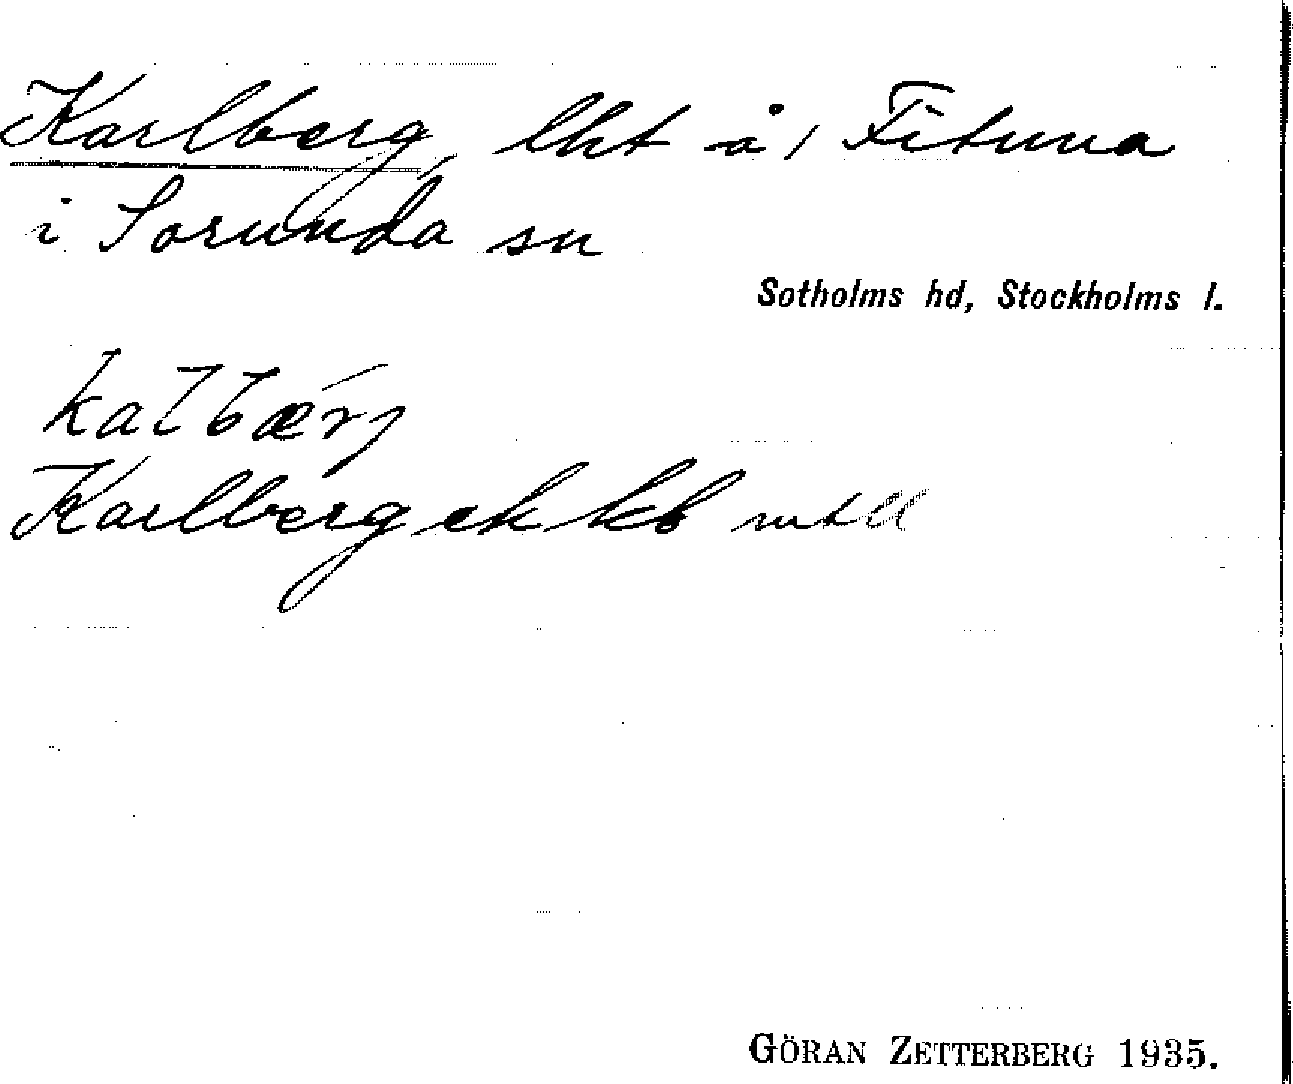 Karlberg, lht å / Fituna
i Sorunda sn
Sotholms hd, Stockholms l.
kalbærj
Karlberg ek kb
GÖRAN ZETTERBERG 1935.